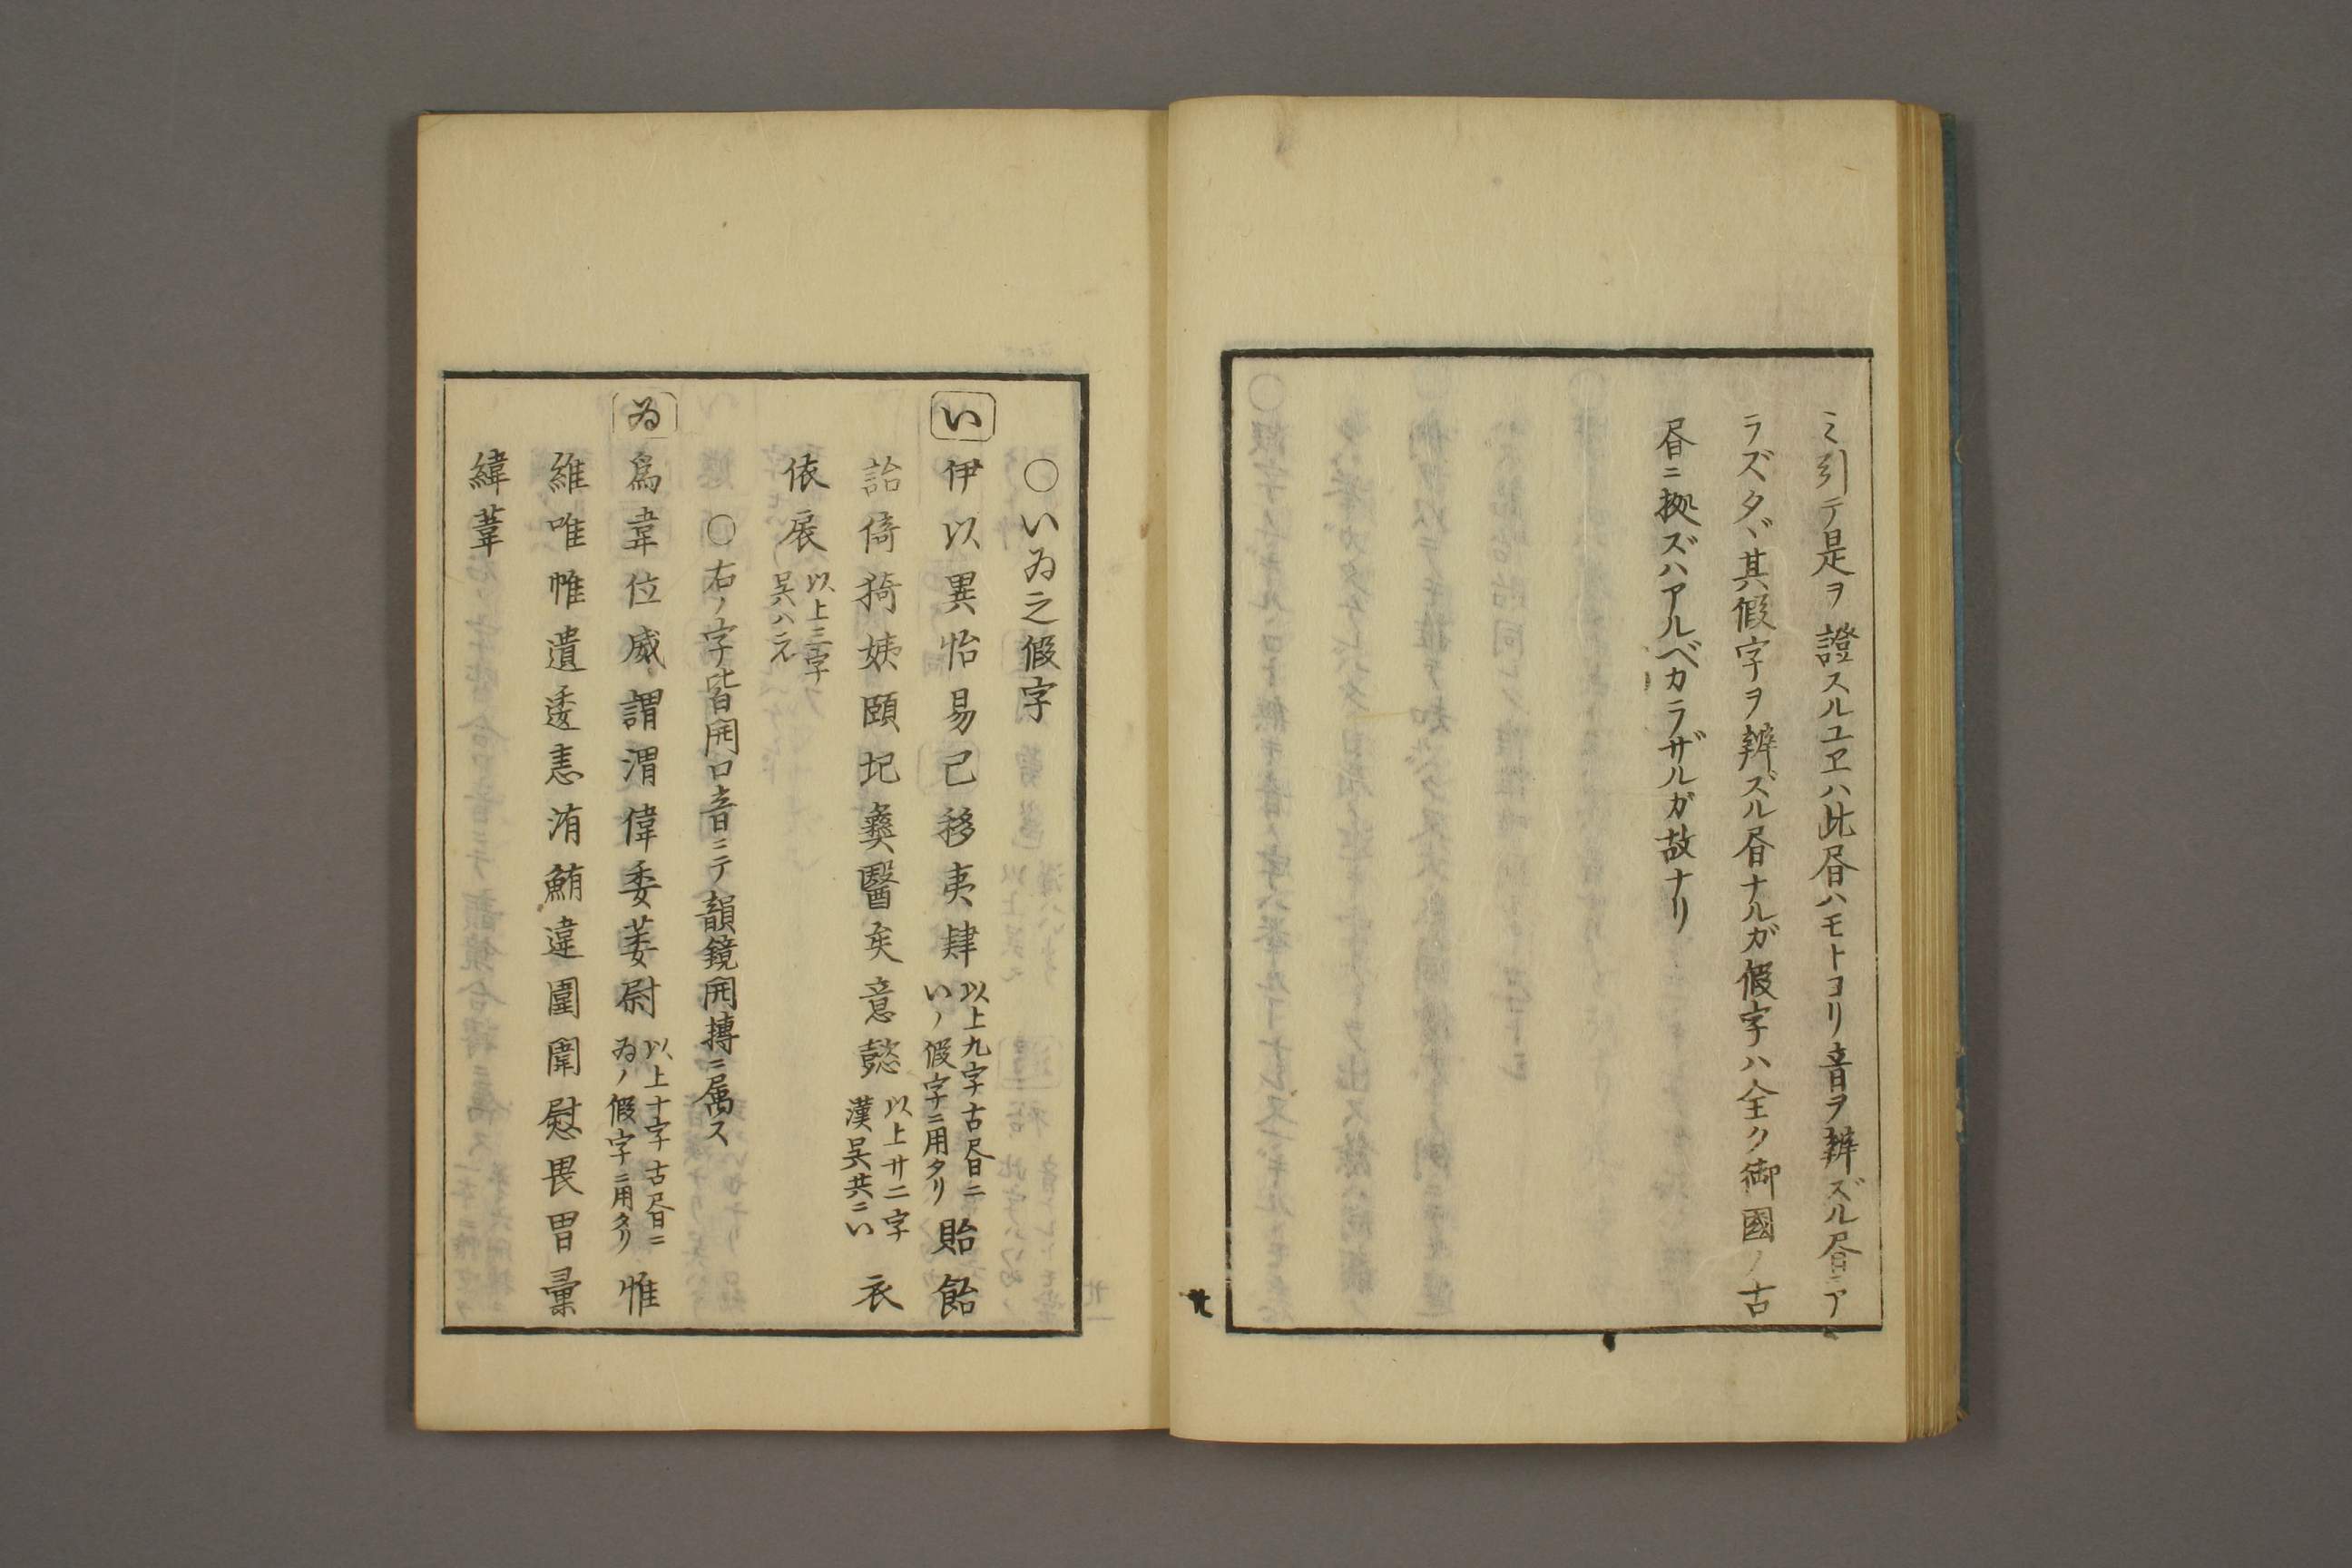 ミ引テ是ヲ證スルユヱハ此㫺ハモトヨリ音ヲ辨ズル㫺ニア
ラズタヾ其假字ヲ辨ズル㫺ナルガ假字ハ全ク御國ノ古
㫺ニ拠ズハアルベカラザルガ故ナリ
廿
○いゐ之假字
い 伊以異怡易已移夷肄 以上九字古㫺ニ
いノ假字ニ用タリ 貽飴
詒倚猗姨頤圯彜醫矣意懿 以上廿二字
漢呉共ニい 衣
依扆 以上三字
呉ハニえ
○右ノ字皆開口音ニテ韻鏡開摶ニ属ス
ゐ 爲韋位威謂渭偉委萎尉 以上十字古㫺ニ
ゐノ假字ニ用タリ 惟
維唯帷遺逶恚洧鮪違圍闈慰畏胃彙
緯葦